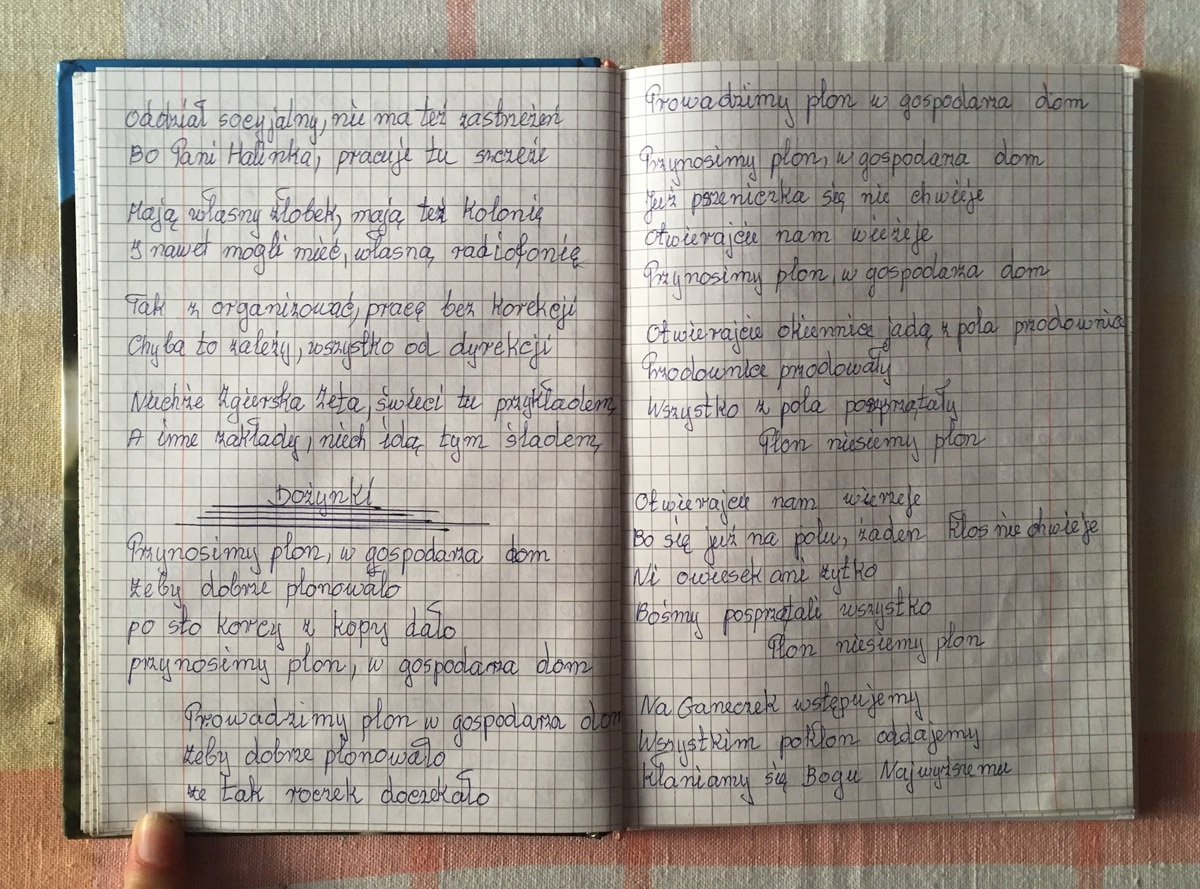 Oddział socyjalny, nie ma też zastrzeżeń
Bo Pani Halinka, pracuje tu szczeże
Mają własny żłobek, mają też kolonię
I nawet mogli mieć, własną radiofonię
Tak z organizować, pracę bez korekcji
Chyba to zależy, wszystko od dyrekcji
Niechże Zgierska Zeta, świeci tu przykładem
A inne zakłady, niech idą tym śladem,
Dożynki
Przynosimy plon, w gospodarza dom
żeby dobrze plonowało
po sto korcy z kopy dało
przynosimy plon, w gospodarza dom
Prowadzimy plon w gospodarza dom
żeby dobrze plonowało
że tak roczek doczekało
Prowadzimy plon w gospodarza dom
Przynosimy plon, w gospodarza dom
Już pszeniczka się nie chwieje
Otwierajcie nam wierzeje
Przynosimy plon, w gospodarza dom
Otwierajcie okiennice jadą z pola przodownice
Przodownice przodowały
Wszystko z pola posprzątały
Plon niesiemy plon
Otwierajcie nam wierzeje
Bo się już na polu, żaden kłos nie chwieje
Ni owiesek ani żytko
Bośmy posprzątali wszystko
Plon niesiemy plon
Na Ganeczek wstępujemy
Wszystkim pokłon oddajemy
Kłaniamy się Bogu Najwyższemu